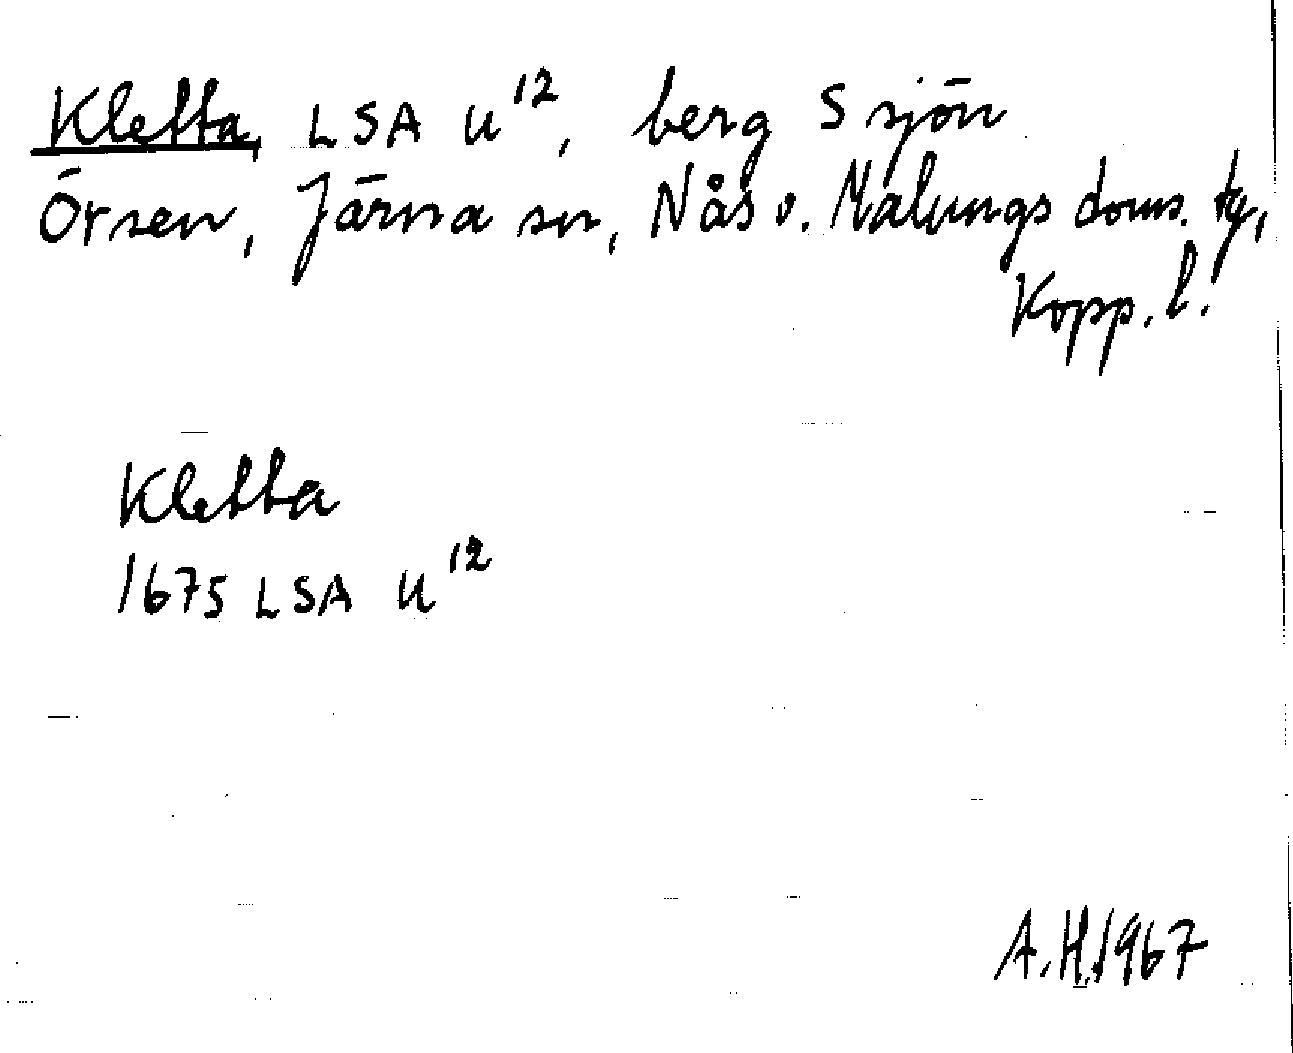 Kletta, LSA U¹², berg S sjön
Örsen, Järna sn, Nås o. Malungs doms. tg,
Kopp. l.
Kletta
1675 LSA U¹²
A.H. 1967